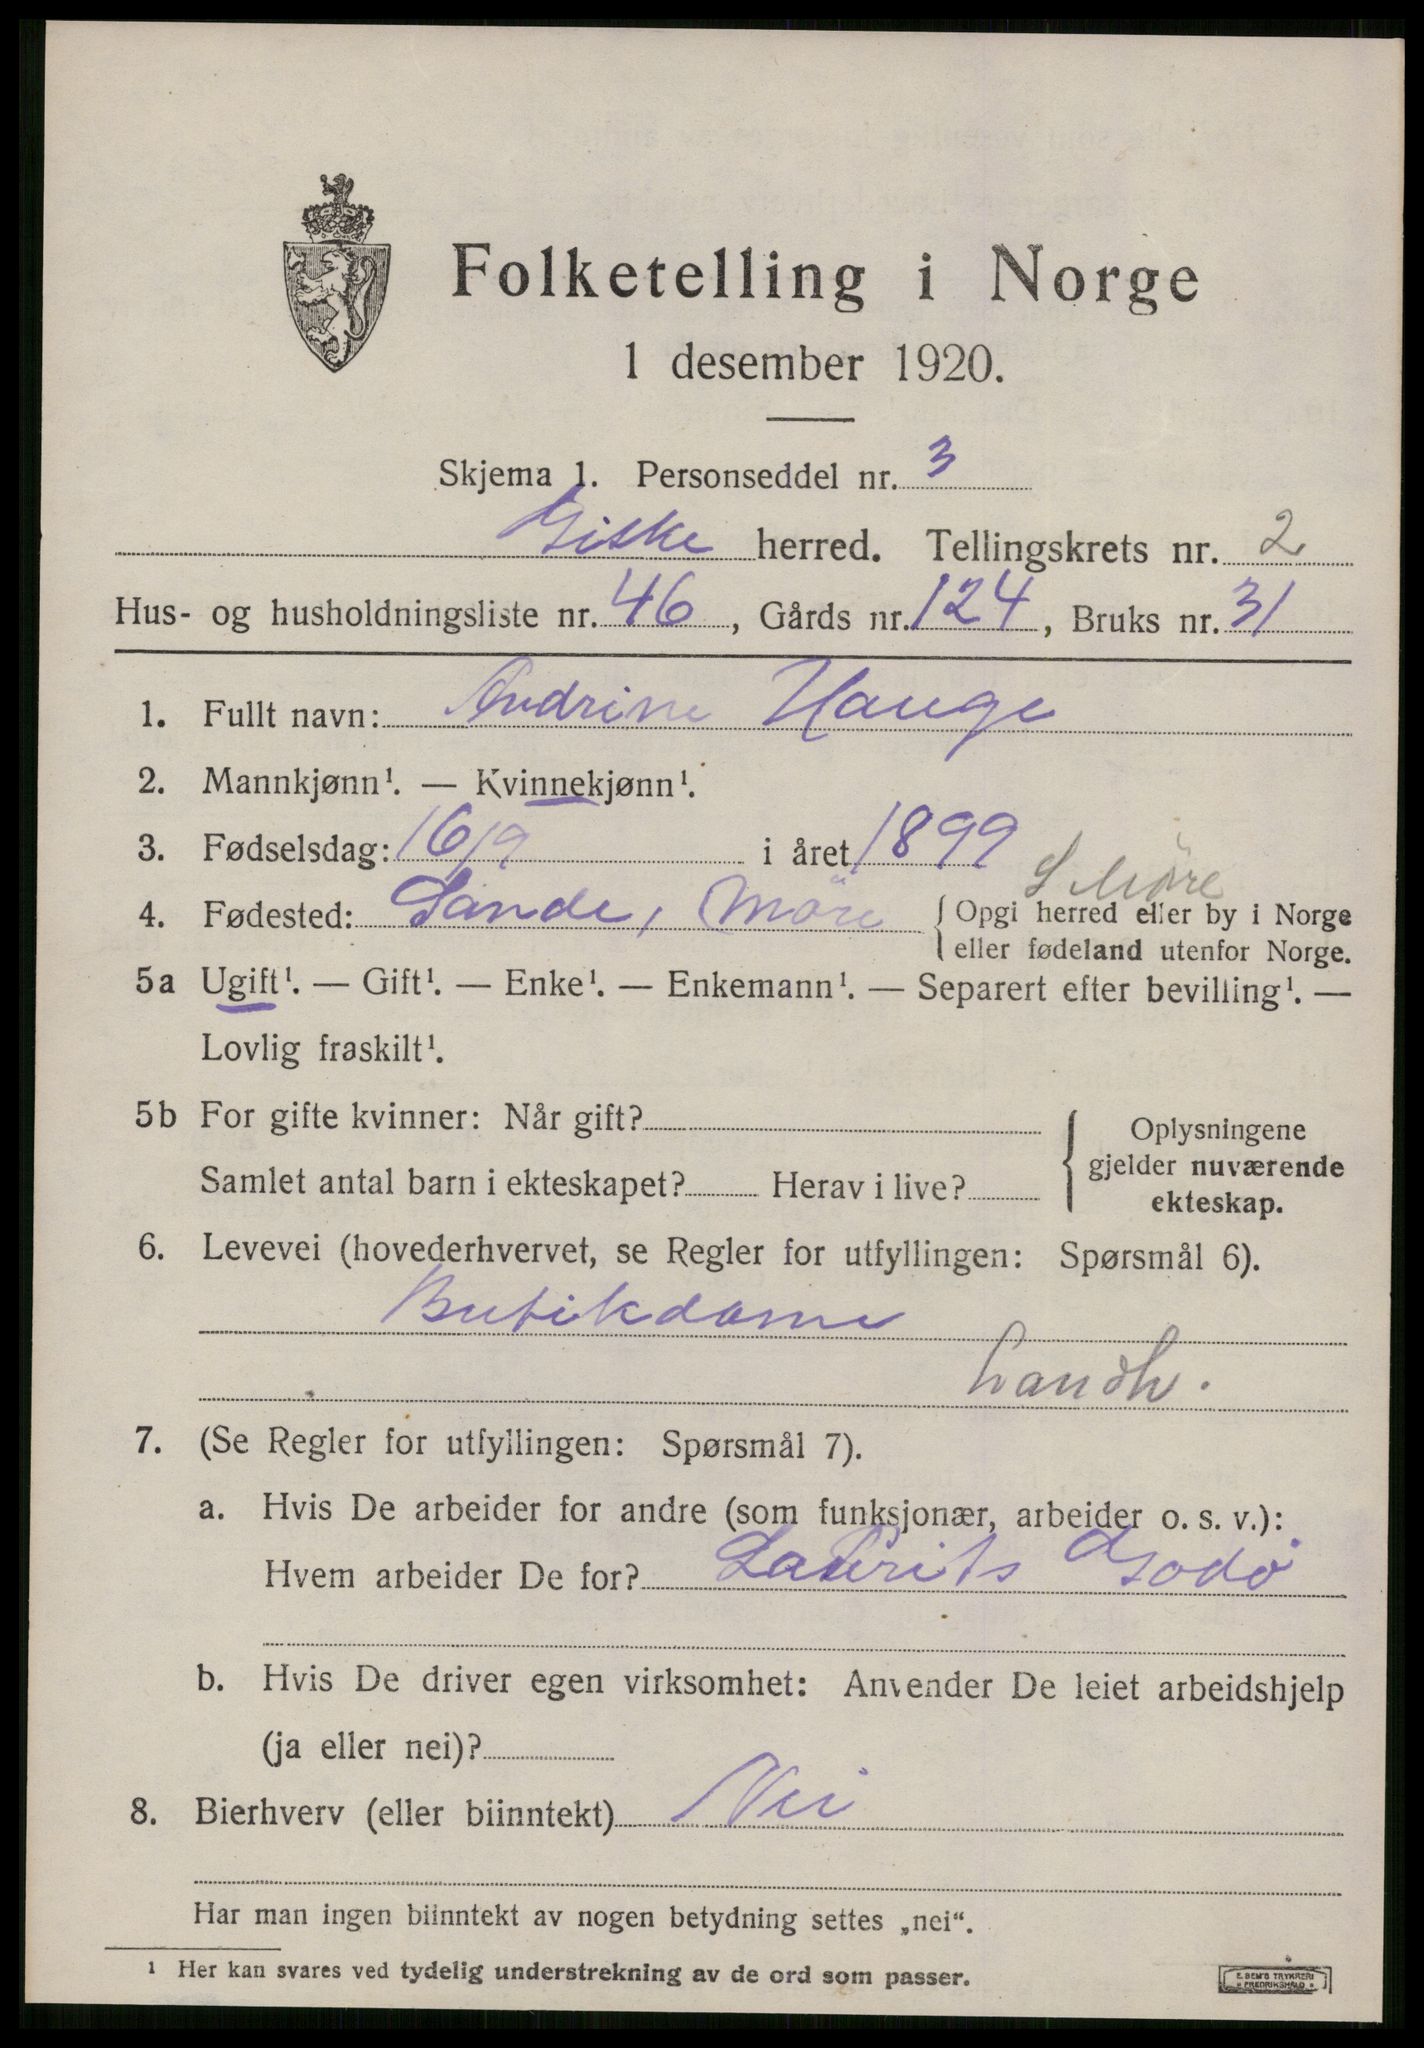 Folketelling i Norge
1 desember 1920.
Skjema 1. Personseddel nr. 3
Giske herred. Tellingskrets nr. 2
Hus- og husholdningsliste nr. 46, Gårds nr. 124, Bruks nr. 31
1. Fullt navn: Andrine Hauge
2. Mannkjønn¹. — Kvinnekjønn¹.
3. Fødselsdag: 16/9 i året 1899
S Møre
4. Fødested: Sande, Möre { Opgi herred eller by i Norge
eller fødeland utenfor Norge.
5a Ugift¹. — Gift¹. — Enke¹. — Enkemann¹. — Separert efter bevilling¹. —
Lovlig fraskilt¹.
5b For gifte kvinner: Når gift?
Samlet antal barn i ekteskapet? Herav i live?
Oplysningene
gjelder nuværende
ekteskap.
6. Levevei (hovederhvervet, se Regler for utfyllingen: Spørsmål 6).
Butikdame
Landh.
7. (Se Regler for utfyllingen: Spørsmål 7).
a. Hvis De arbeider for andre (som funksjonær, arbeider o. s. v.):
Hvem arbeider De for? Laurits Godø
b. Hvis De driver egen virksomhet: Anvender De leiet arbeidshjelp
(ja eller nei)?
8. Bierhverv (eller biinntekt) Nei
Har man ingen biinntekt av nogen betydning settes „nei“.
¹ Her kan svares ved tydelig understrekning av de ord som passer.
E. SEM'S TRYKKERI
FREDRIKSHALD